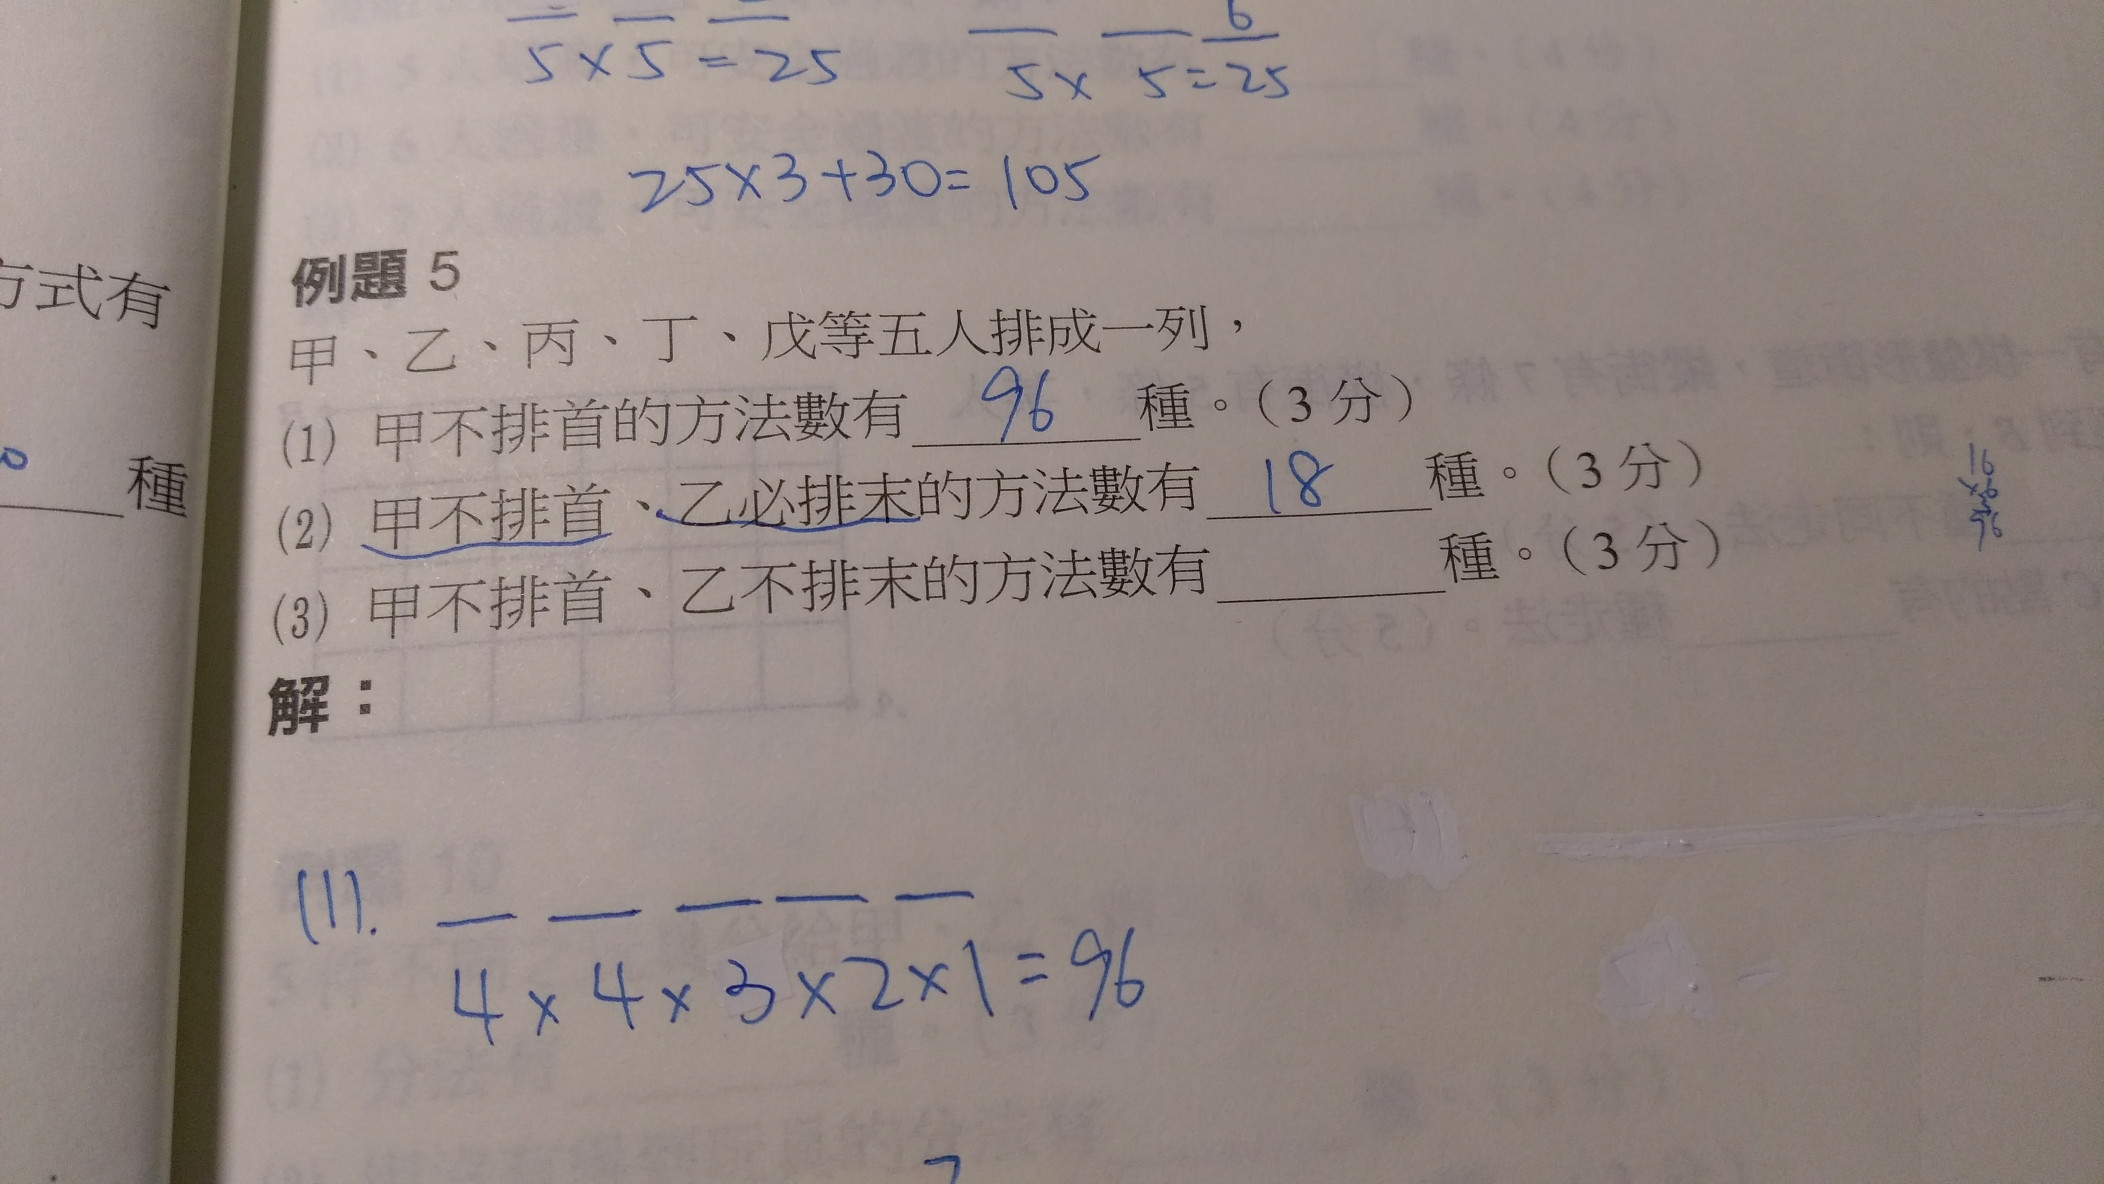 5×5=25 5×5=25
6
25×3+30=105
方式有
例題 5
甲、乙、丙、丁、戊等五人排成一列，
(1) 甲不排首的方法數有 96 種。(3 分)
種
(2) 甲不排首、乙必排末的方法數有 18 種。(3 分)
(3) 甲不排首、乙不排末的方法數有______種。(3 分)
16
×6
96
解：
(1). 4×4×3×2×1=96